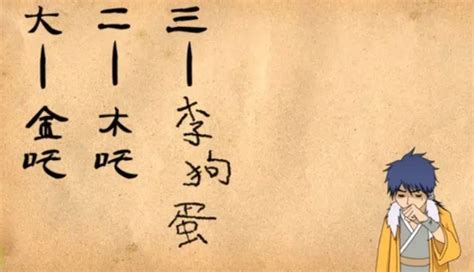 大—金吒
二—木吒
三—李狗蛋